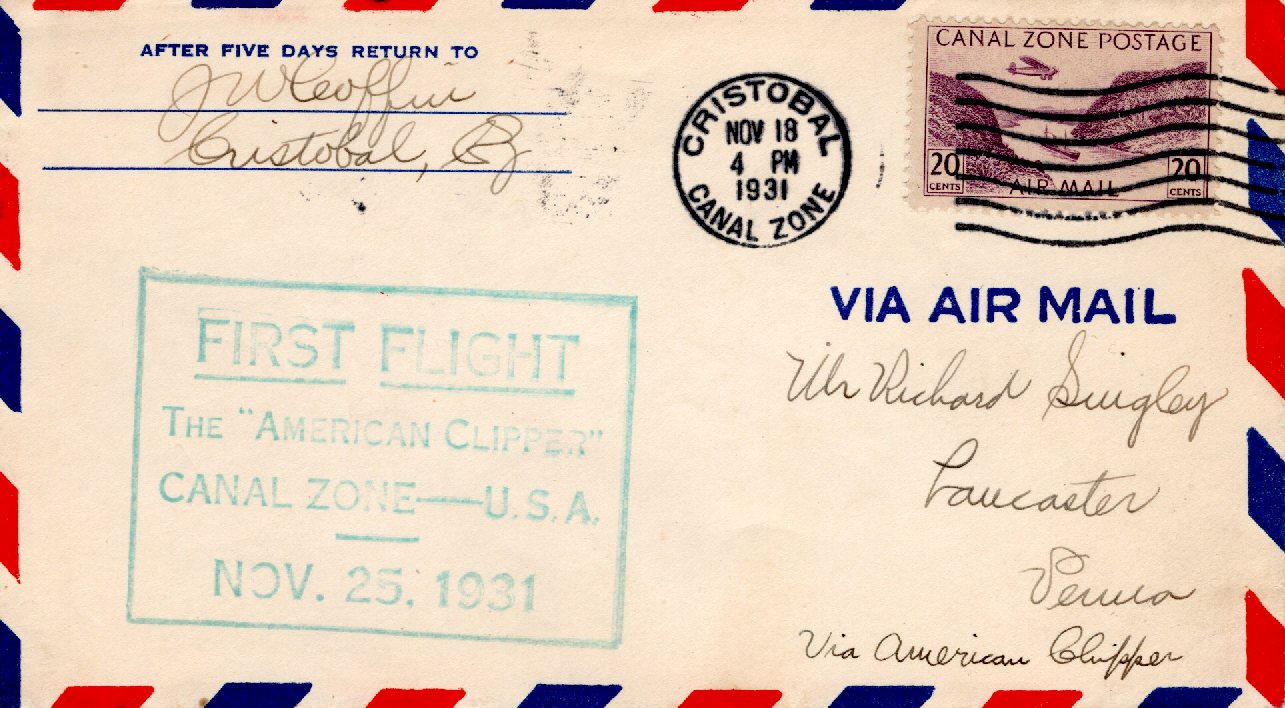 AFTER FIVE DAYS RETURN TO
J W Coffin
Cristobal, Cz
CRISTOBAL
NOV 18
4 PM
1931
CANAL ZONE
CANAL ZONE POSTAGE
20 CENTS
AIR MAIL
20 CENTS
VIA AIR MAIL
FIRST FLIGHT
THE "AMERICAN CLIPPER"
CANAL ZONE—U.S.A.
NOV. 25. 1931
Mr Richard Singley
Lancaster
Penna
Via American Clipper